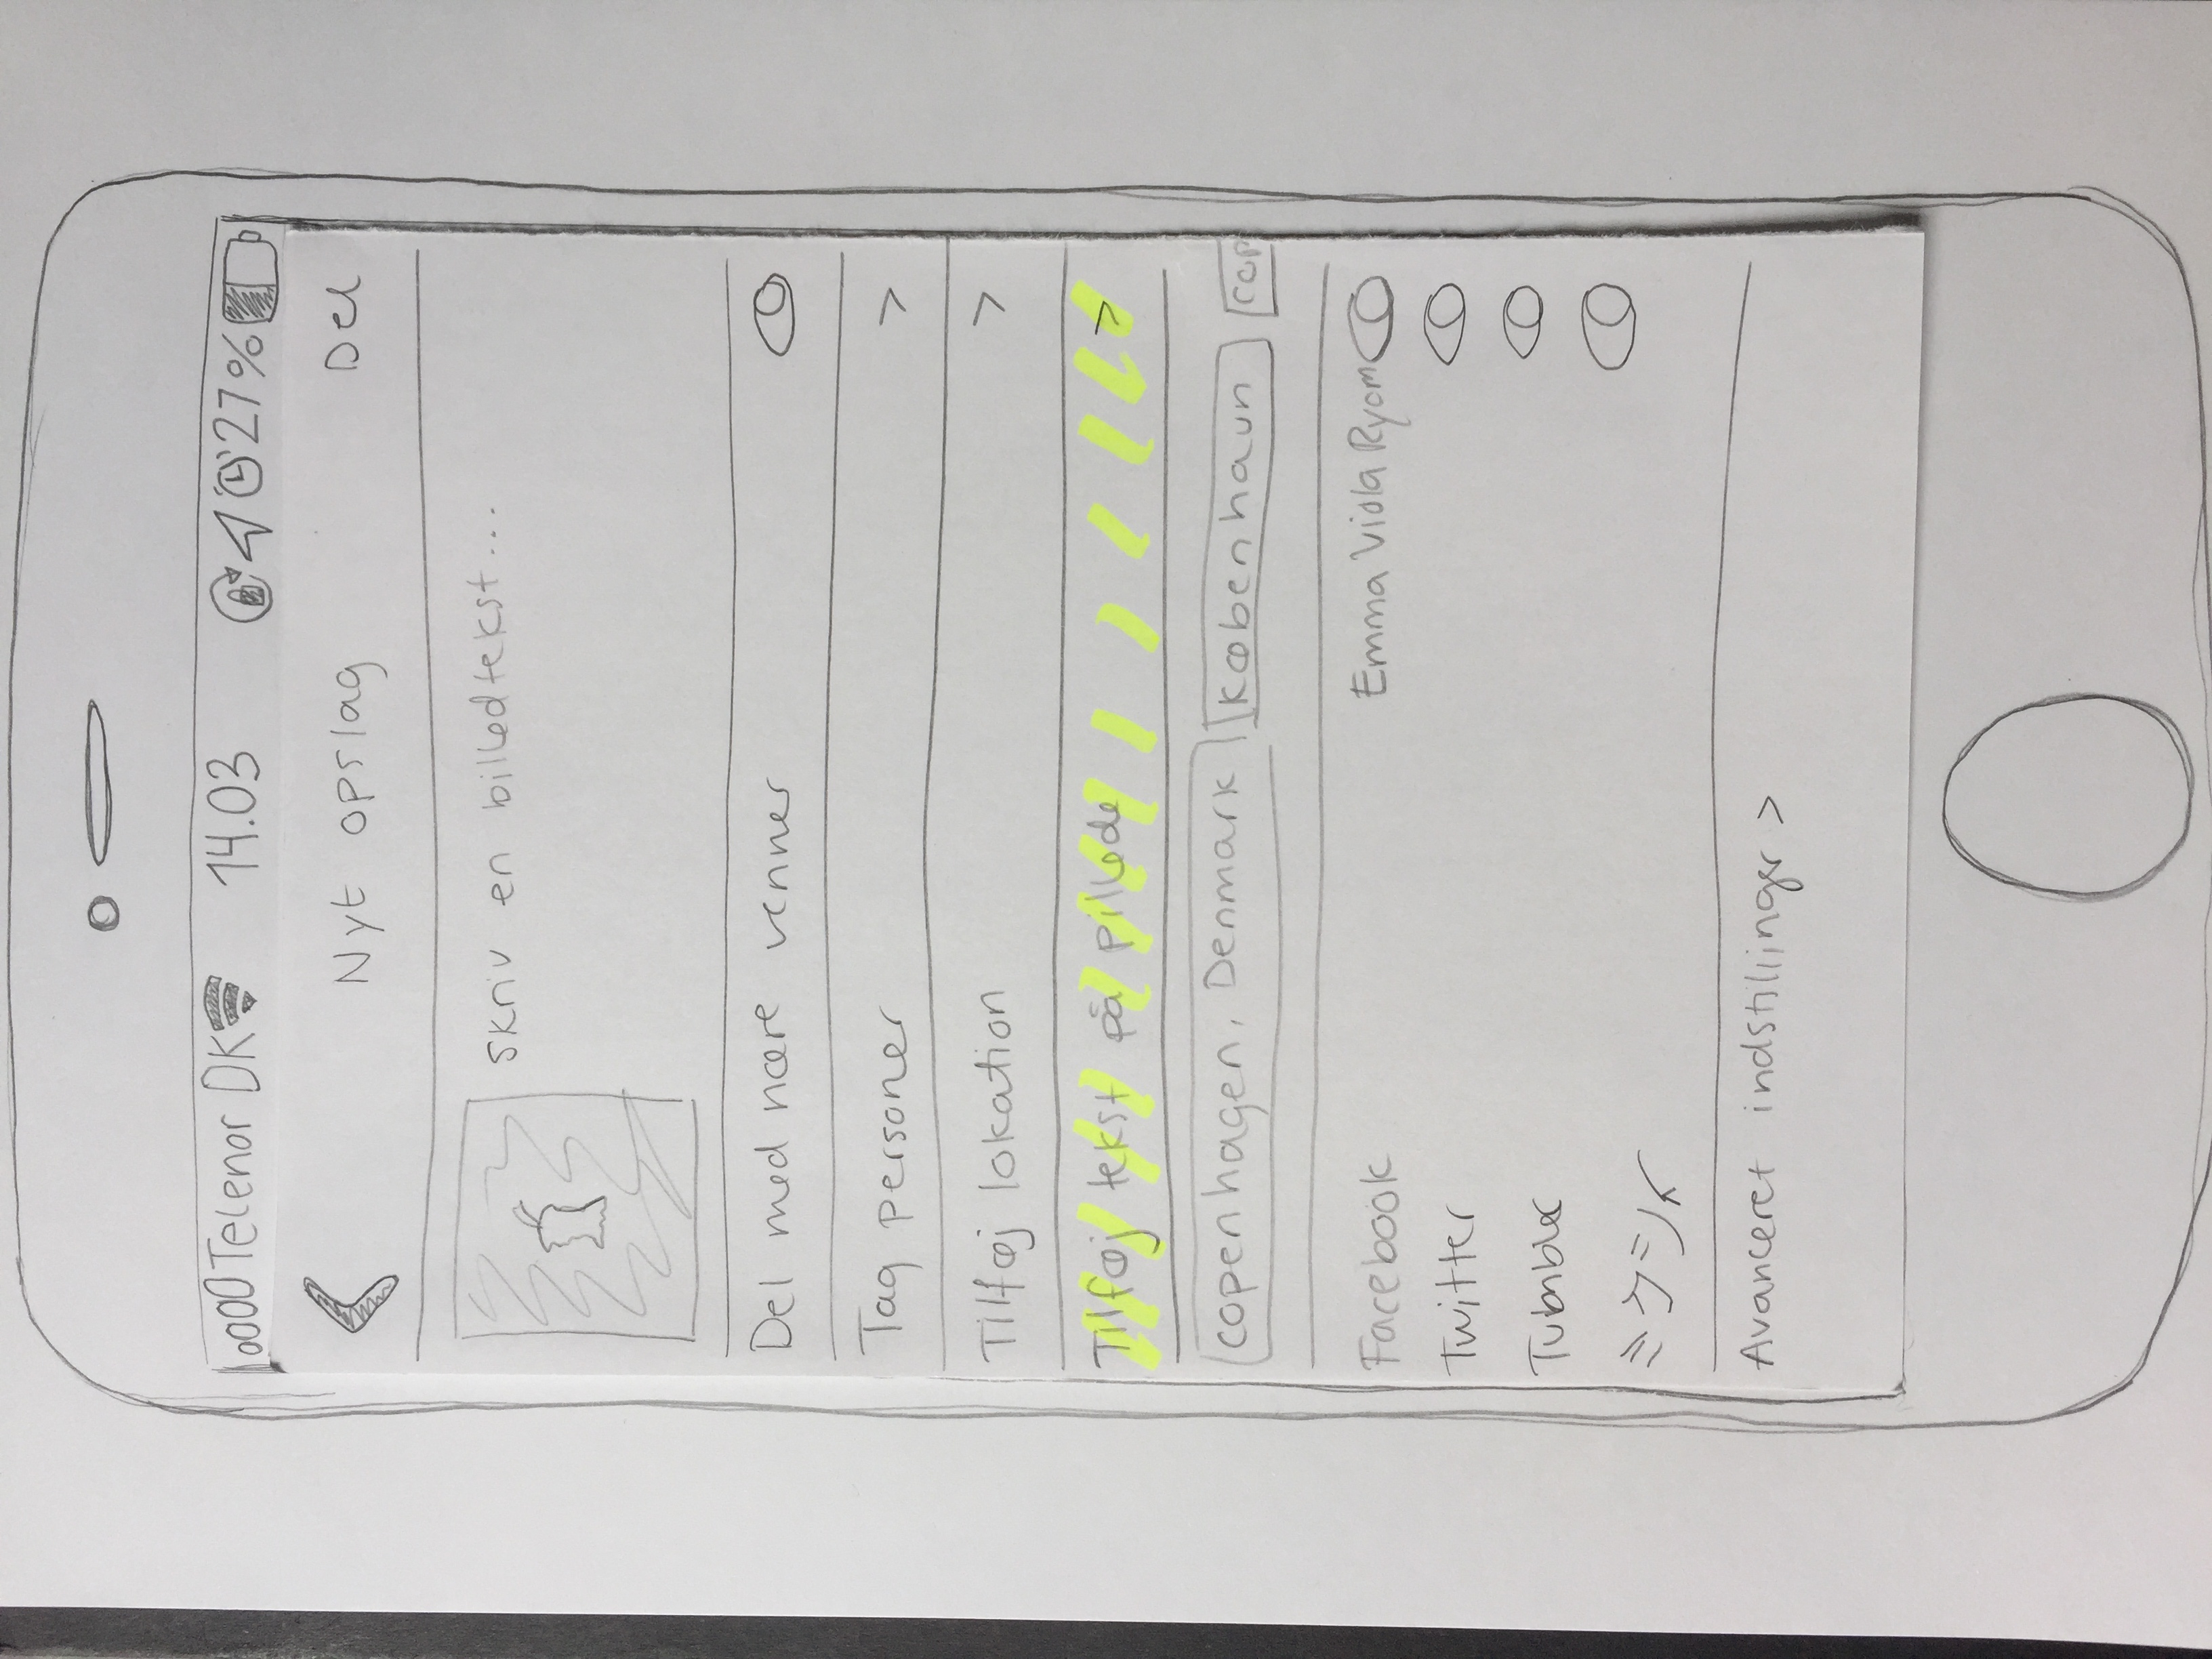 Telenor DK 14.03 27%
Nyt opslag Del
skriv en billedtekst...
Del med nære venner
Tag personer >
Tilføj lokation >
Tilføj tekst på pillede >
copenhagen, Denmark København cop
Facebook Emma Viola Ryom
Twitter
ミクシィ
Avanceret indstillinger >